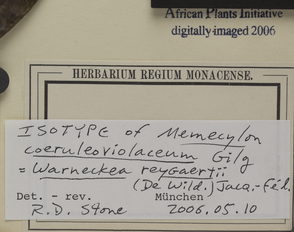 African Plants Initiative
digitally imaged 2006
HERBARIUM REGIUM MONACENSE.
ISOTYPE of Memecylon
coeruleoviolaceum Gilg
= Warneckea reygaertii
(De Wild.) Jacq.-Fél.
Det. - rev. München
R.D. Stone 2006.05.10